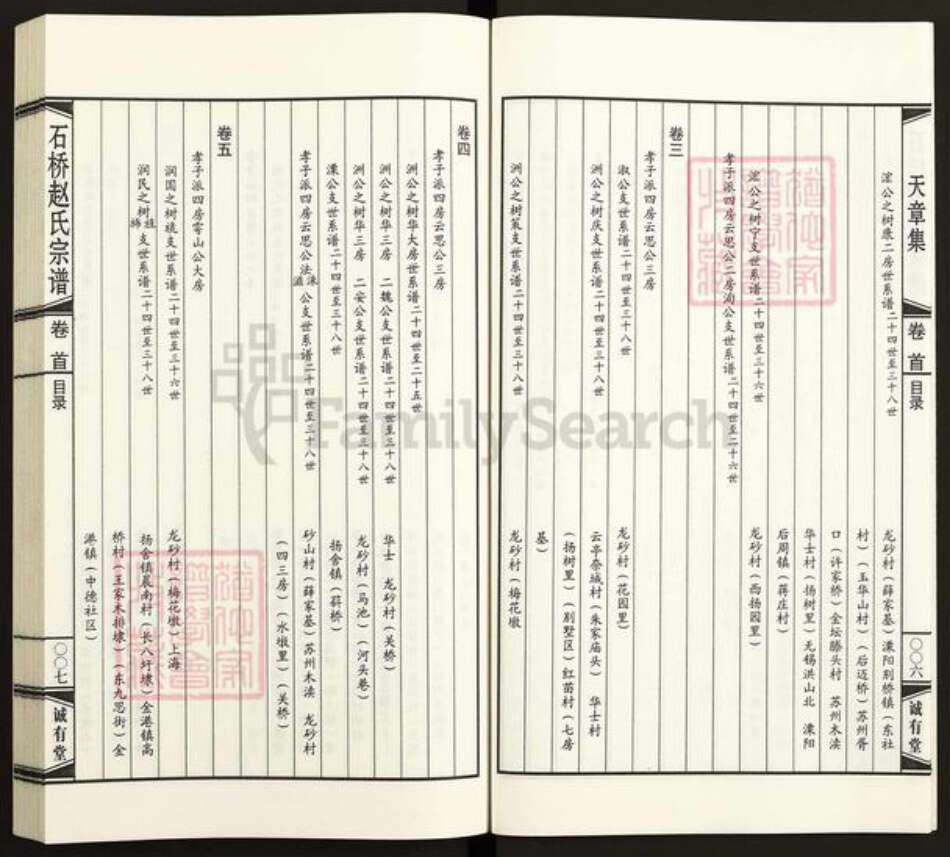 天章集
卷首
目录
〇〇六
诚有堂
浤公之树康二房世系谱二十四世至三十八世
龙砂村（薛家基）溧阳别桥镇（东社
村）（玉华山村）（后迈桥）苏州胥
口（许家桥）金坛滕头村 苏州木渎
华士村（扬树里）无锡洪山北 溧阳
后周镇（蒋庄村）
浤公之树宁支世系谱二十四世至三十六世
龙砂村（西扬园里）
孝子派四房云思公二房洵公支世系谱二十四世至二十六世
卷三
孝子派四房云思公三房
淑公支世系谱二十四世至三十八世
龙砂村（花园里）
洲公之树庆支世系谱二十四世至三十八世
云亭奈城村（朱家庙头） 华士村
（扬树里）（别墅区）红苗村（七房
基）
洲公之树蓂支世系谱二十四世至三十八世
龙砂村（梅花墩
卷四
孝子派四房云思公三房
洲公之树华大房世系谱二十四世至二十五世
洲公之树华三房 二魏公支世系谱二十四世至三十八世
华士 龙砂村（吴桥）
洲公之树华三房 二安公支世系谱二十四世至三十八世
龙砂村（马池）（河头巷）
溧公支世系谱二十四世至三十八世
扬舍镇（蒋桥）
孝子派四房云思公法 公支世系谱二十四世至三十八世
砂山村（薛家基）苏州木渎 龙砂村
（四三房）（水墩里）（吴桥）
卷五
孝子派四房雩山公大房
润国之树 支世系谱二十四世至三十六世
龙砂村（梅花墩）上海
润民之树 支世系谱二十四世至三十八世
扬舍镇晨南村（长八圩埭）金港镇高
桥村（王家木排埭）（东九思街）金
港镇（中德社区）
石桥赵氏宗谱
卷首
目录
〇〇七
诚有堂
FamilySearch